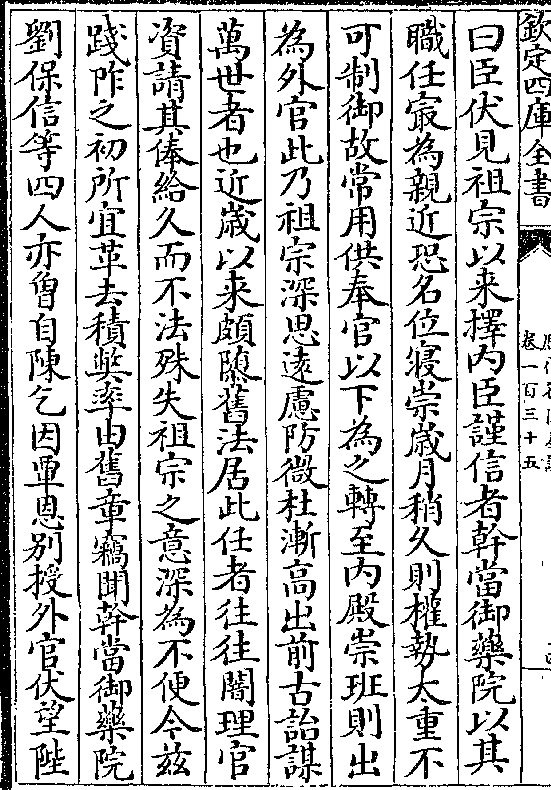 欽定四庫全書
卷一百三十五
曰臣伏見祖宗以来擇内臣謹信者幹當御藥院以其
職任㝡為親近恐名位寖崇歳月稍久則權勢太重不
可制御故常用供奉官以下為之轉至内殿崇班則出
為外官此乃祖宗深思逺慮防微杜漸髙出前古詒謀
萬世者也近歳以来頗隳舊法居此任者往往闇理官
資請其俸給久而不法殊失祖宗之意深為不便今兹
踐阼之初所宜革去積弊率由舊章竊聞幹當御藥院
劉保信等四人亦曽自陳乞因覃恩别授外官伏望陛